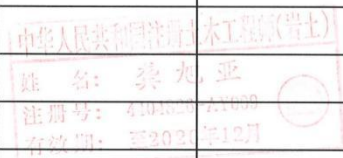 中华人民共和国注册土木工程师(岩土)
姓 名: 龚旭亚
注册号:
有效期: 至2020年12月